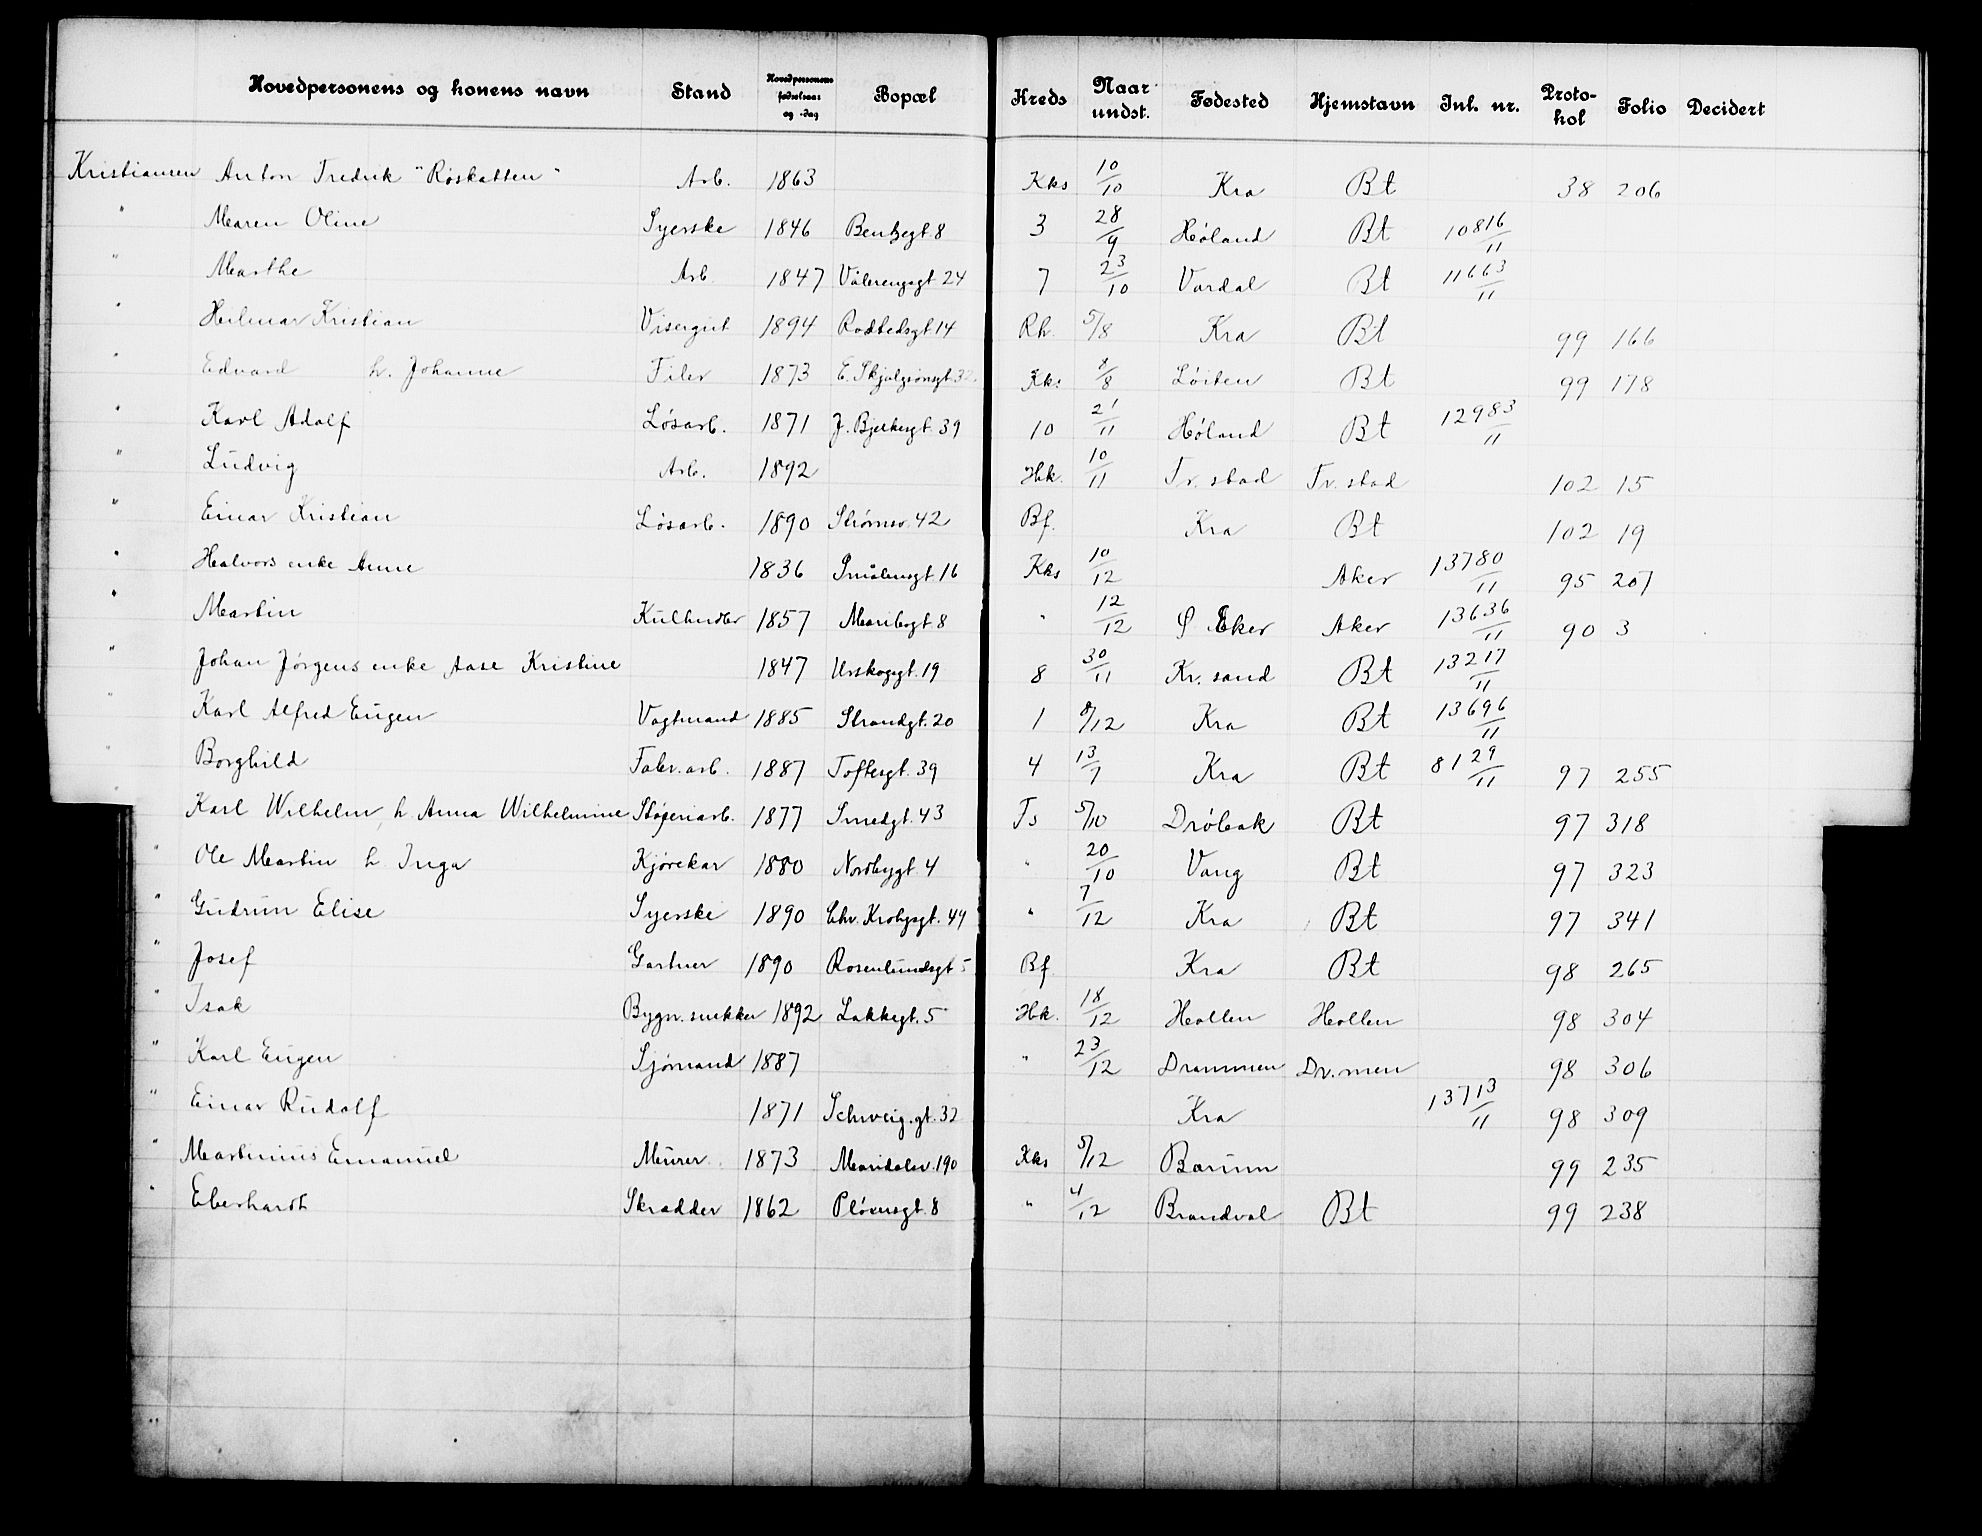 Hovedpersonens og konens navn Stand Hovedpersonens fødselsaar og -dag Bopæl Kreds Naar undst. Fødested Hjemstavn Inl. nr. Protokol Folio Decidert
Kristiansen Anton Fredrik "Røskatten" Arb. 1863 Kks 10/10 Kra Bt 38 206
" Maren Oline Syerske 1846 Bentzegt 8 3 28/9 Høland Bt 10816/11
" Marthe Arb. 1847 Vålerengagt 24 7 23/10 Vardal Bt 11663/11
" Hilmar Kristian Visergut 1894 Rodeledsgt 14 Rh. 5/8 Kra Bt 99 166
" Edvard h. Johanne Filer 1873 E. Skjulgsonsgt 32 Kks 8/8 Löiten Bt 99 178
" Karl Adolf Løsarb. 1871 J. Bjerkesgt. 39 10 21/11 Høland Bt 12983/11
" Ludvig Arb. 1892 Hk. 10/11 Fr. stad Fr. stad 102 15
" Einar Kristian Løsarb. 1890 Strømsv. 42 Bf. Kra Bt 102 19
" Halvors enke Anne 1836 Smålensgt 16 Kks 10/12 Aker 13780/11 95 207
" Martin Kulhndlr 1857 Maribogt 8 " 12/12 Ø Eker Aker 13636/11 90 3
" Johan Jørgens enke Aase Kristine 1847 Urskoggt. 19 8 30/11 Kr. sand Bt 13217/11
" Karl Alfred Eugen Vogtmand 1885 Strandgt. 20 1 8/12 Kra Bt 13696/11
" Borghild Fabr. arb. 1887 Toftesgt. 39 4 13/7 Kra Bt 8129/11 97 255
Karl Wilhelm, h. Anna Wilhelmine Støperiarb. 1877 Smedgt. 43 Ts 5/10 Drøbak Bt 97 318
" Ole Martin h. Inga Kjørekar 1880 Nordbygt 4 " 20/10 Vang Bt 97 323
" Gudrun Elise Syerske 1890 Chr. Krohgsgt. 44 " 7/12 Kra Bt 97 341
" Josef Gartner 1890 Rosenlundsgt 5 Bf. Kra Bt 98 265
" Isak Bygn. snekker 1892 Lakkegt. 5 Hk. 18/12 Hollen Hollen 98 304
" Karl Eugen Sjømand 1887 " 23/12 Drammen Dr. men 98 306
" Einar Rudolf 1871 Schweig. gt. 32 Kra 13713/11 98 309
" Martinius Emanuel Murer. 1873 Maridalsv. 190 Kks 5/12 Bærum 99 235
" Eberhardt Skrædder 1862 Pløensgt. 8 " 4/12 Brandval Bt 99 238
"